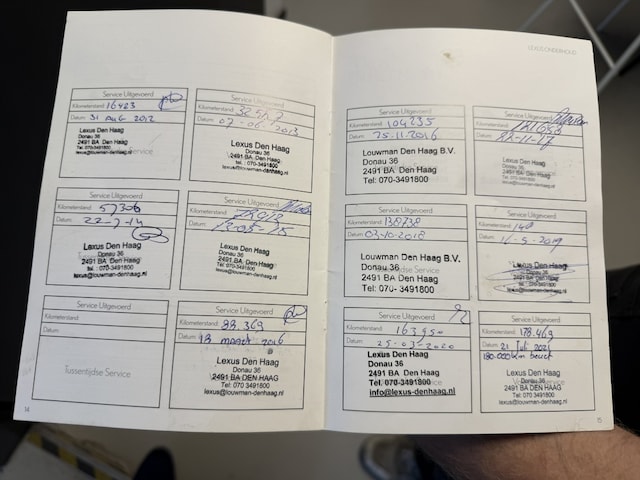 Service Uitgevoerd
Kilometerstand: 16423
Datum: 31 AUG 2012
Lexus Den Haag
Donau 36
2491 BA Den Haag
Tel. 070-3491800
lexus@louwman-denhaag.nl
Service Uitgevoerd
Kilometerstand:
Datum: 07-06-2013
Lexus Den Haag
Donau 36
2491 BA Den Haag
tel. : 070-3491800
lexus@louwman-denhaag.nl
Service Uitgevoerd
Kilometerstand: 57306
Datum: 22-7-14
Lexus Den Haag
Donau 36
2491 BA Den Haag
tel. : 070-3491800
lexus@louwman-denhaag.nl
Service Uitgevoerd
Kilometerstand:
Datum:
Lexus Den Haag
Donau 36
2491 BA Den Haag
Tel: 070 3491800
lexus@louwman-denhaag.nl
Service Uitgevoerd
Kilometerstand:
Datum:
Tussentijdse Service
Service Uitgevoerd
Kilometerstand: 88.369
Datum: 18 maart 2016
Lexus Den Haag
Donau 36
2491 BA DEN HAAG
Tel: 070 3491800
lexus@louwman-denhaag.nl
14
LEXUS ONDERHOUD
Service Uitgevoerd
Kilometerstand: 104235
Datum: 25-11-2016
Louwman Den Haag B.V.
Donau 36
2491 BA DEN HAAG
Tel: 070-3491800
Service Uitgevoerd
Kilometerstand:
Datum:
Lexus Den Haag
Donau 36
2491 BA DEN HAAG
Tel: 070 3491800
lexus@louwman-denhaag.nl
Service Uitgevoerd
Kilometerstand: 138738
Datum: 03-10-2018
Louwman Den Haag B.V.
Donau 36
2491 BA DEN HAAG
Tel: 070- 3491800
Service Uitgevoerd
Kilometerstand:
Datum: 16-5-2019
Lexus Den Haag
Donau 36
Service Uitgevoerd
Kilometerstand: 163950
Datum: 25-03-2020
Lexus Den Haag
Donau 36
2491 BA DEN HAAG
Tel. 070-3491800
info@lexus-denhaag.nl
Service Uitgevoerd
Kilometerstand: 178.469
Datum: 21 Juli 2021
180.000 km beurt
Lexus Den Haag
Donau 36
2491 BA DEN HAAG
Tel: 070 3491800
lexus@louwman-denhaag.nl
15